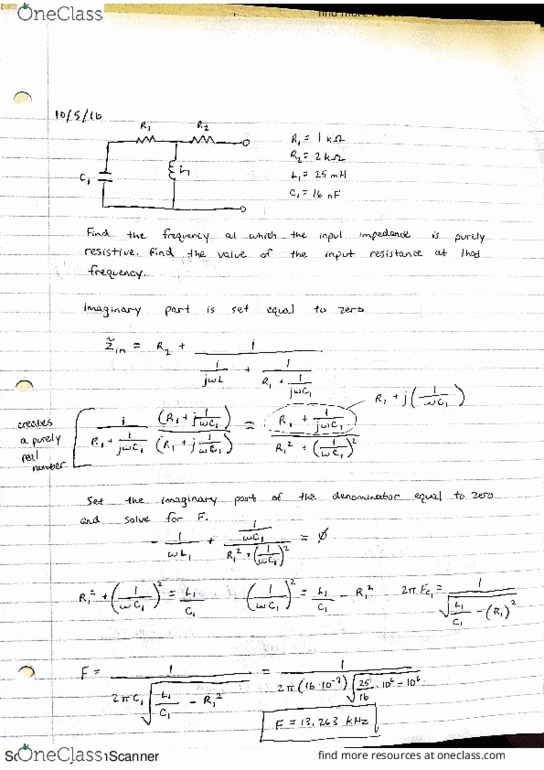 OneClass
find more resources at oneclass.com
10/5/16
R₁
R₂
C₁
L₁
R₁ = 1 kΩ
R₂ = 2 kΩ
L₁ = 25 mH
C₁ = 16 nF
Find the frequency at which the input impedance is purely
resistive. Find the value of the input resistance at that
frequency.
Imaginary part is set equal to zero
Z̃in = R₂ + 1 / (1/(jωL) + 1/(R₁ + 1/(jωC₁)))
R₁ + j(1/(ωC₁))
creates
a purely
real
number
1/(R₁ + 1/(jωC₁)) · (R₁ + j 1/(ωC₁))/(R₁ + j 1/(ωC₁)) = (R₁ + 1/(jωC₁))/(R₁² + (1/(ωC₁))²)
Set the imaginary part of the denominator equal to zero
and solve for F.
- 1/(ωL₁) + (1/(ωC₁))/(R₁² + (1/(ωC₁))²) = ∅
R₁² + (1/(ωC₁))² = L₁/C₁ (1/(ωC₁))² = L₁/C₁ - R₁² 2πFC₁ = 1/√(L₁/C₁ - (R₁)²)
F = 1/(2πC₁√(L₁/C₁ - R₁²)) = 1/(2π(16·10⁻⁹)√(25/16·10⁶ - 10⁶))
F = 13.263 kHz
OneClass
Scanner
find more resources at oneclass.com